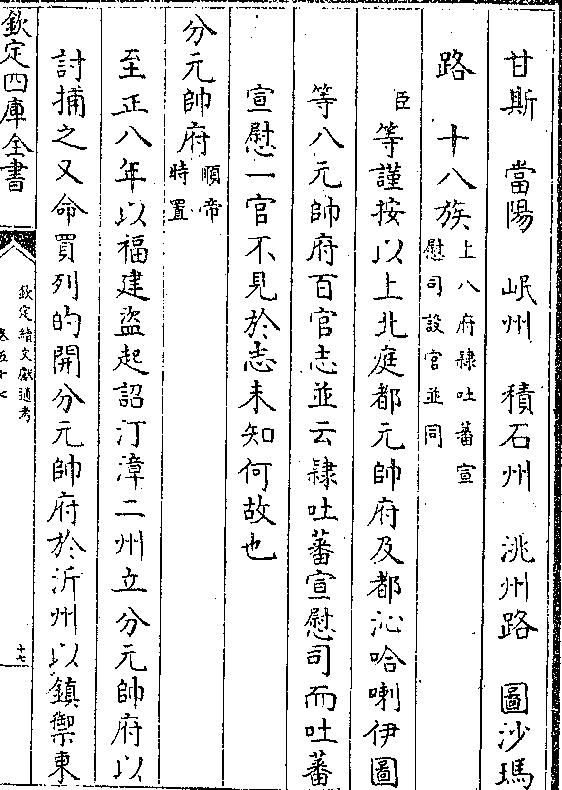 甘斯　當陽　岷州　積石州　洮州路　圖沙瑪
路　十八族上八府隸吐蕃宣
慰司設官並同
臣等謹按以上北庭都元帥府及都沁哈喇伊圖
等八元帥府百官志並云隸吐蕃宣慰司而吐蕃
宣慰一官不見於志未知何故也
分元帥府順帝
時置
至正八年以福建盜起詔汀漳二州立分元帥府以
討捕之又命買列的開分元帥府於沂州以鎮禦東
欽定四庫全書
欽定續文獻通考
卷五十七
十七